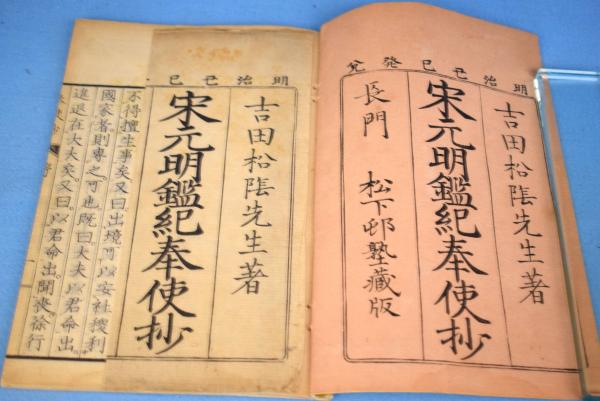 明治己巳發兌
吉田松陰先生著
宋元明鑑紀奉使抄
長門 松下邨塾藏版
明治己巳
吉田松陰先生著
宋元明鑑紀奉使抄
不得擅生事矣又曰出境可以安社稷利
國家者則專之可也既曰大夫以君命出
進退在大夫矣又曰以君命出聞喪徐行